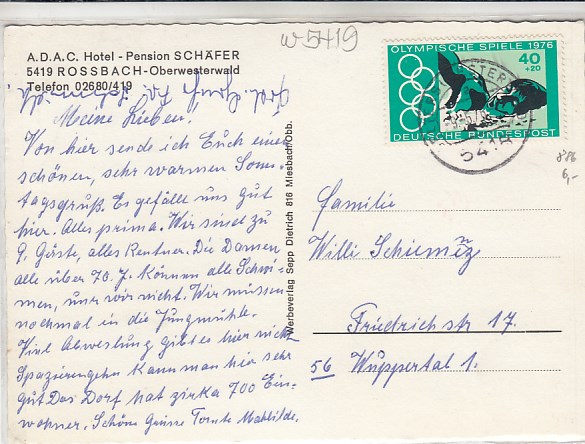 w 5419
A.D.A.C. Hotel - Pension SCHÄFER
5419 ROSSBACH-Oberwesterwald
Telefon 02680/419
Meine Lieben!
Von hier sende ich Euch einen
schönen, sehr warmen Sonn-
tagsgruß. Es gefällt uns gut
hier. Alles prima. Wir sind zu
9. Gäste, alles Rentner. Die Damen
alle über 70. J. Können alle Schwi-
men, nur wir nicht. Wir müssen
nochmal in die Jungmühle.
Viel Abweslung gibt es hier nicht
Spazierengehn kann man hier sehr
gut Das Dorf hat zirka 700 Ein-
wohner. Schöne Grüsse Tante Mathilde.
Werbeverlag Sepp Dietrich 816 Miesbach/Obb.
OLYMPISCHE SPIELE 1976
40
+20
DEUTSCHE BUNDESPOST
5418
6,-
Familie
Willi Schieměz
Friedrichstr 17.
56 Wuppertal 1.